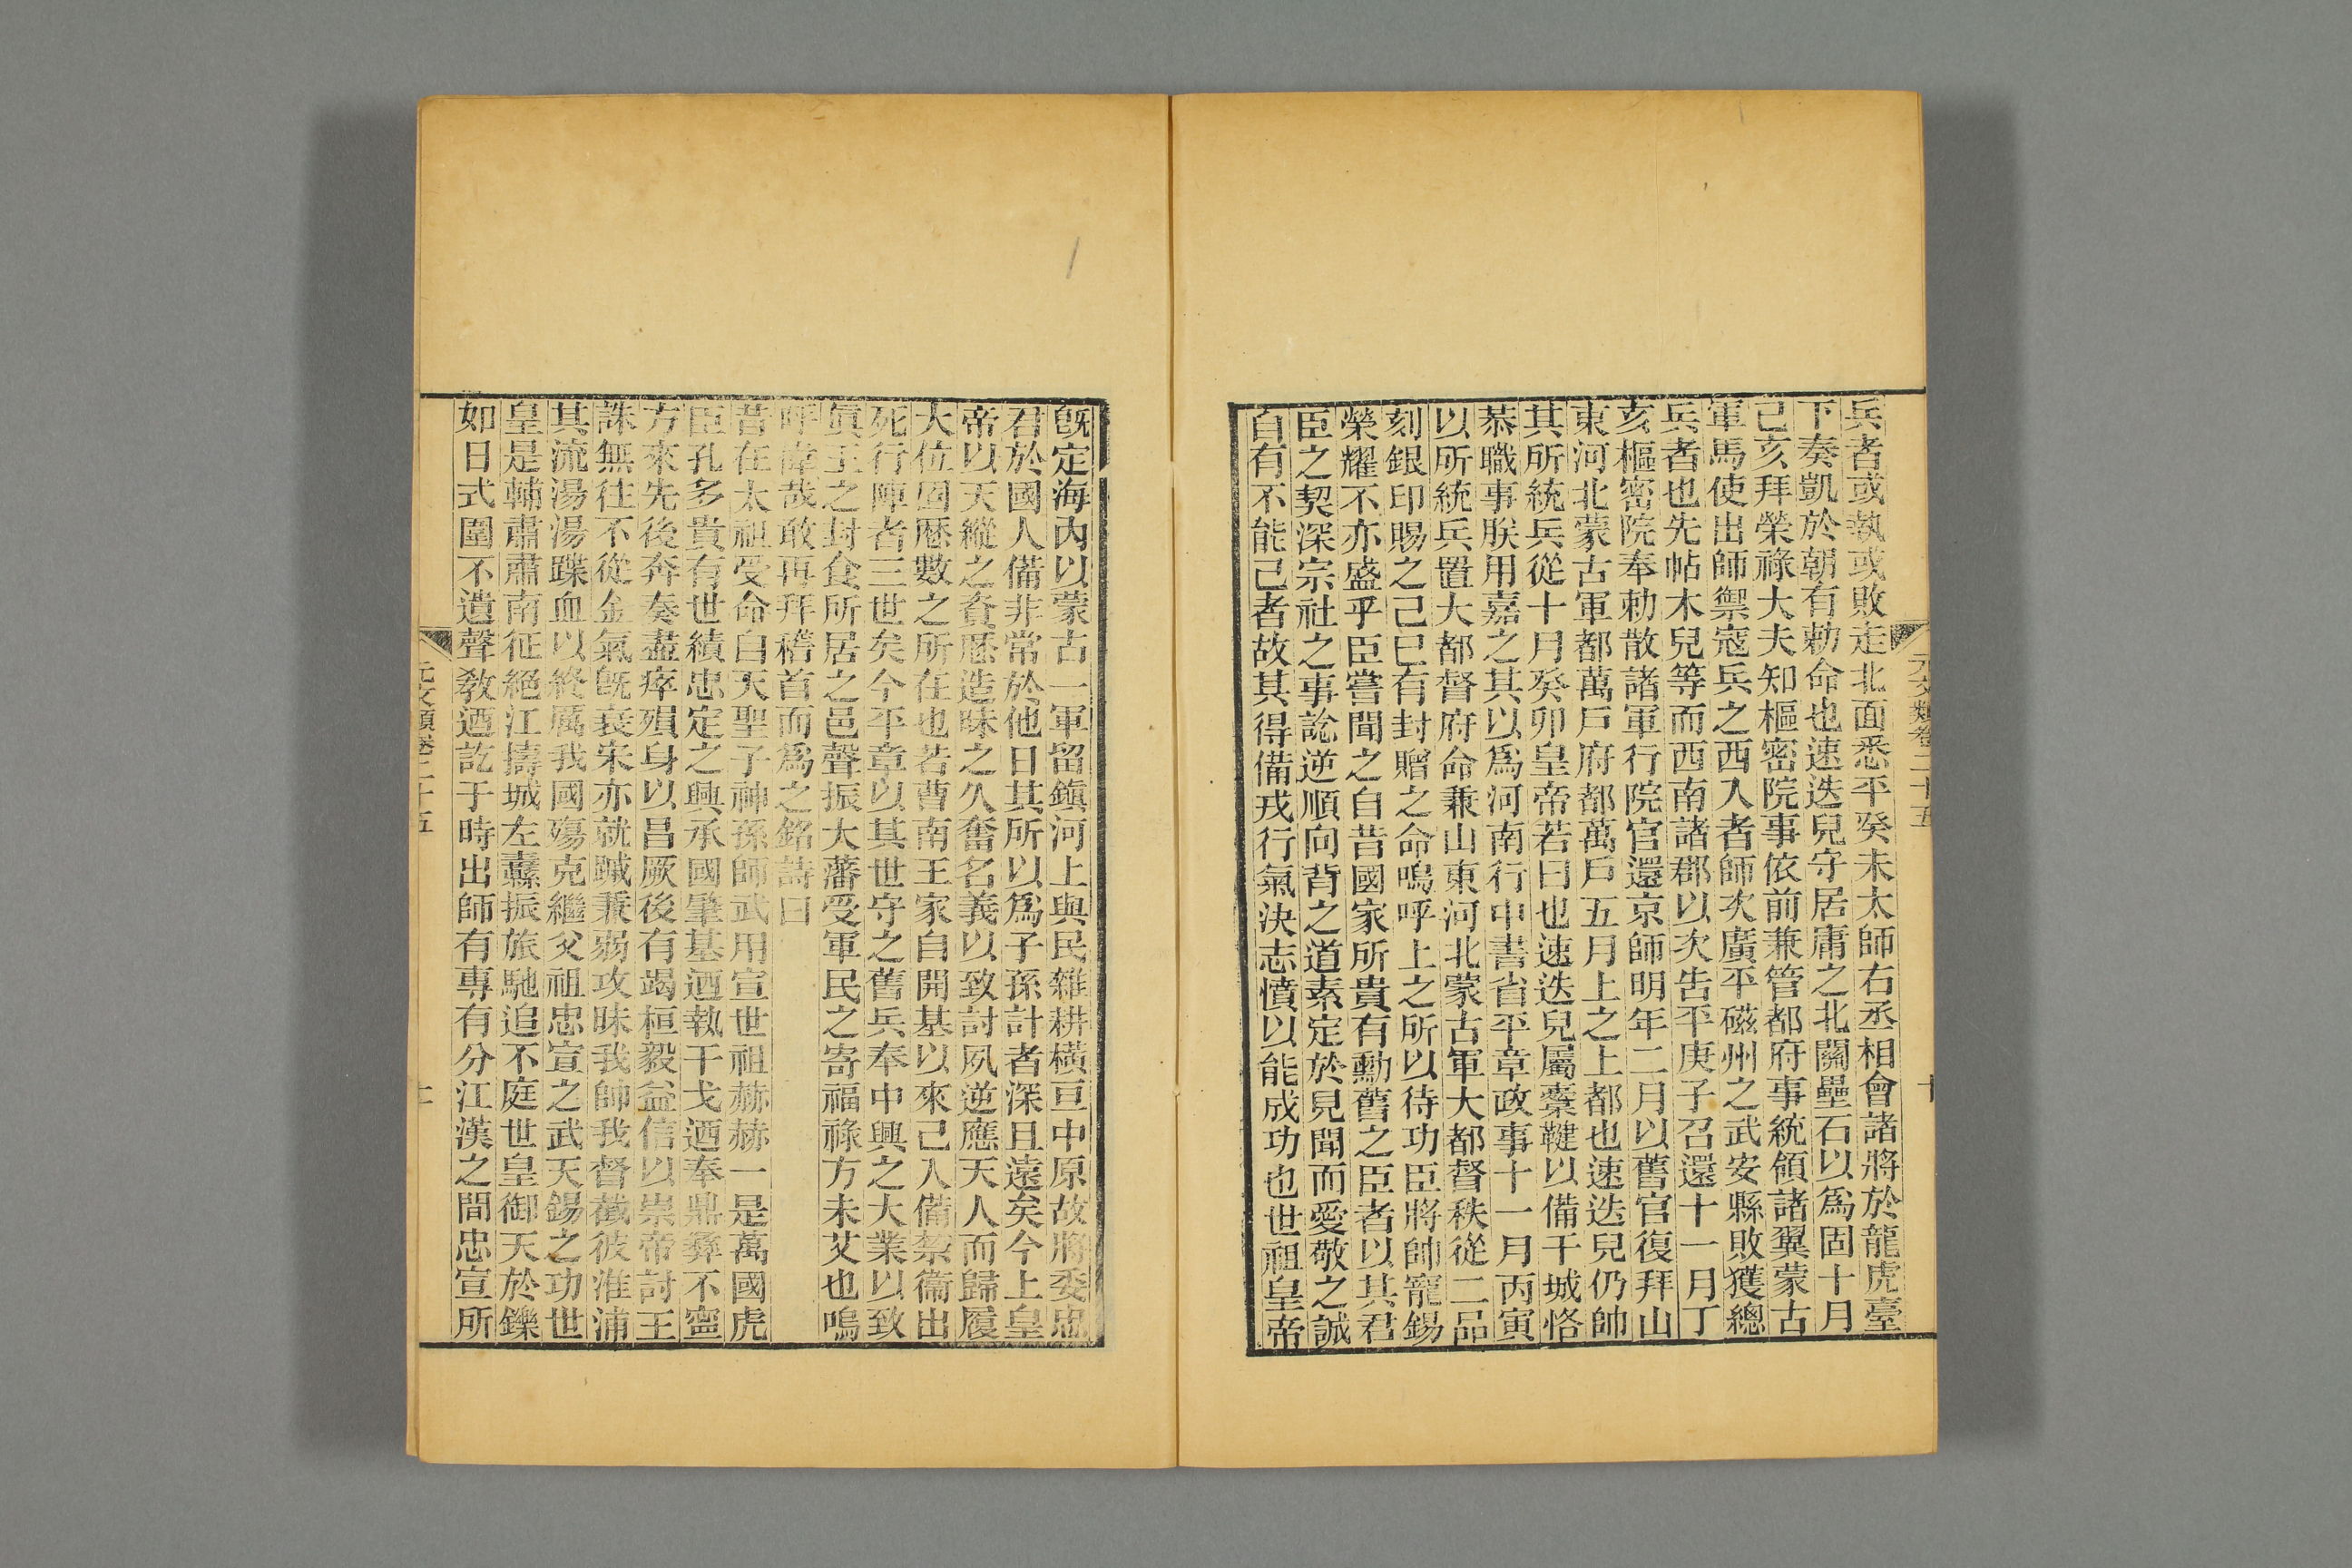 兵者或執或敗走北面悉平癸未太師右丞相會諸將於龍虎臺
下奏凱於朝有勅命也速迭兒守居庸之北關壘石以爲固十月
己亥拜榮祿大夫知樞密院事依前兼管都府事統領諸翼蒙古
軍馬使出師禦寇兵之西入者師次廣平磁州之武安縣敗獲總
兵者也先帖木兒等而西南諸郡以次告平庚子召還十一月丁
亥樞密院奉勅散諸軍行院官還京師明年二月以舊官復拜山
東河北蒙古軍都萬戶府都萬戶五月上之上都也速迭兒仍帥
其所統兵從十月癸卯皇帝若曰也速迭兒屬櫜鞬以備干城恪
恭職事朕用嘉之其以爲河南行中書省平章政事十一月丙寅
以所統兵置大都督府命兼山東河北蒙古軍大都督秩從二品
刻銀印賜之己巳有封贈之命嗚呼上之所以待功臣將帥寵錫
榮耀不亦盛乎臣嘗聞之自昔國家所貴有勳舊之臣者以其君
臣之契深宗社之事諗逆順向背之道素定於見聞而愛敬之誠
自有不能己者故其得備戎行氣決志憤以能成功也世祖皇帝
元文類卷二十五
十
旣定海內以蒙古一軍留鎭河上與民雜耕橫亘中原故將委忠
君於國人備非常於他日其所以爲子孫計者深且遠矣今上皇
帝以天縱之資歷造昧之久奮名義以致討夙逆應天人而歸履
大位固歷數之所在也若曹南王家自開基以來己入備禁衞出
死行陣者三世矣今平章以其世守之舊兵奉中興之大業以致
眞王之封食所居之邑聲振大藩受軍民之寄福祿方未艾也嗚
呼偉哉敢再拜稽首而爲之銘詩曰
昔在太祖受命自天聖子神孫師武用宣世祖赫赫一是萬國虎
臣孔多貴有世績忠定之興承國肇基迺執干戈迺奉鼎彝不寍
方來先後奔奏盡瘁殞身以昌厥後有竭桓毅益信以崇帝討王
誅無往不從金氣旣衰宋亦就蹴兼弱攻昧我帥我督截彼淮浦
其流湯湯蹀血以終厲我國殤克繼父祖忠宣之武天錫之功世
皇是輔肅肅南征絕江擣城左纛振旅馳追不庭世皇御天於鑠
如日式圍不遺聲敎迺訖于時出師有專有分江漢之間忠宣所
元文類卷二十五